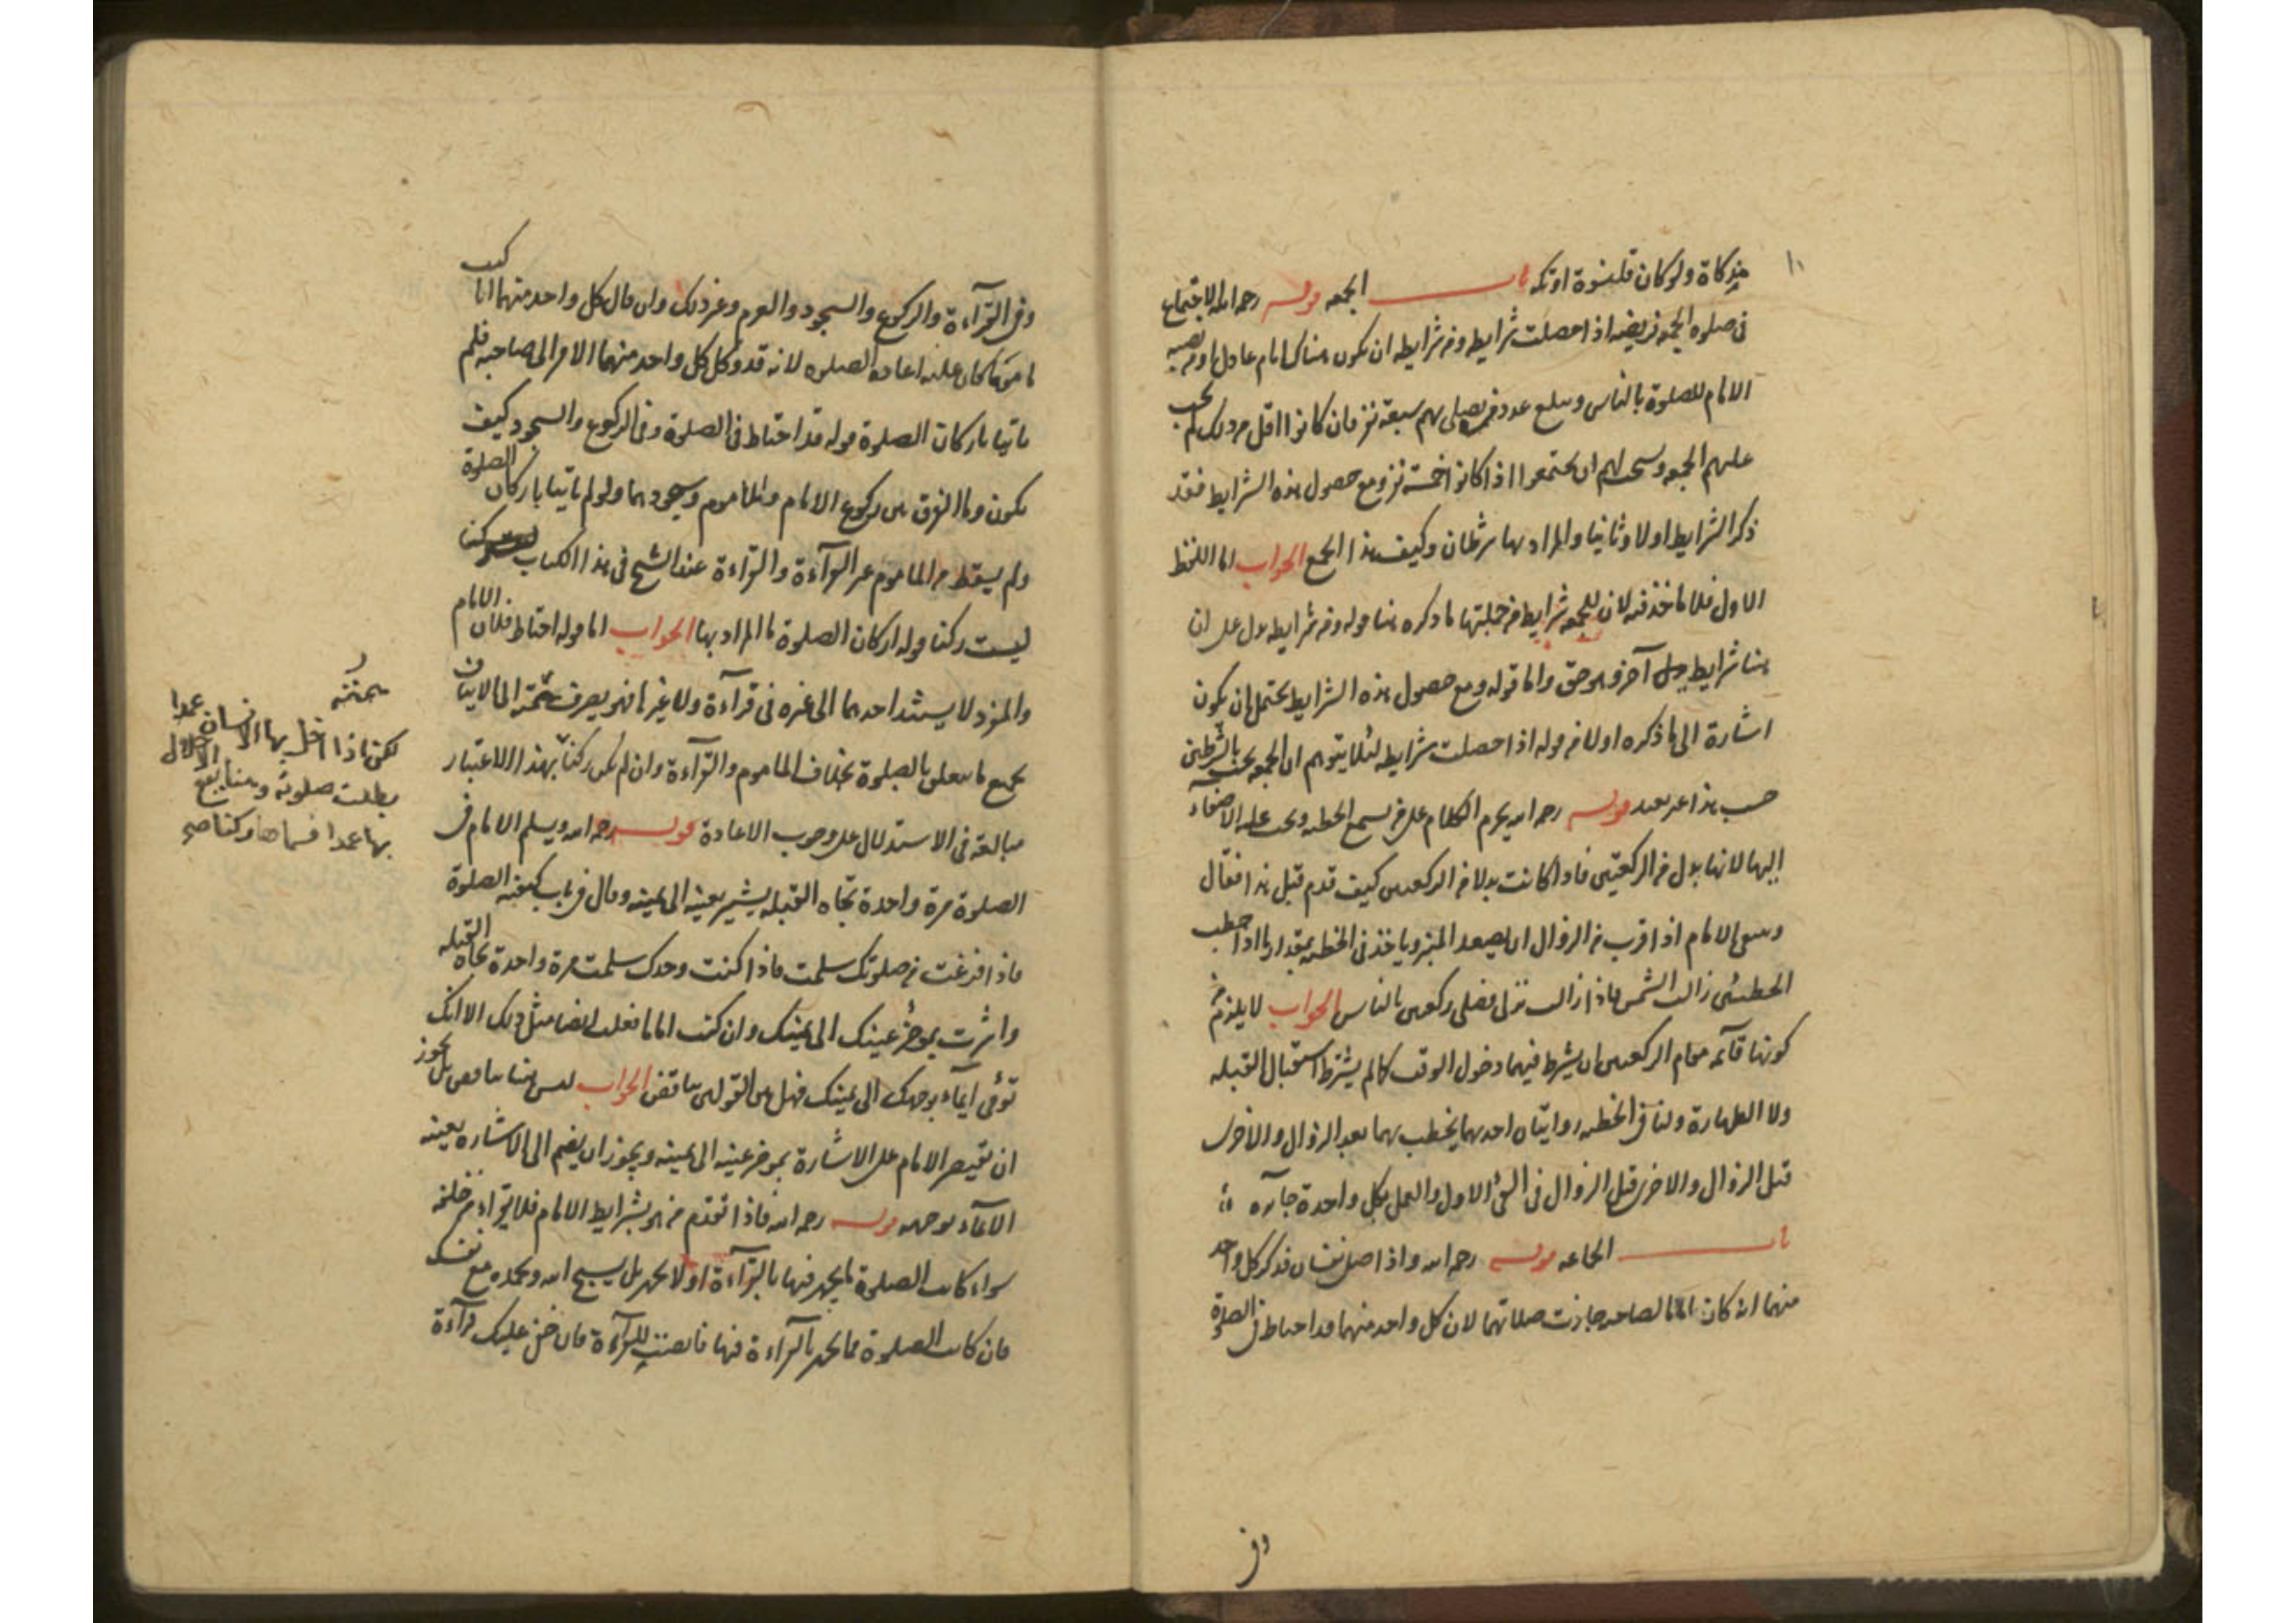 ١٠
من ذكاة ولو كان قلنسوة او تكه باب الجمعه قوله رحمه الله الاجتماع
فى صلوه الجمعه فريضه اذا حصلت شرايطه ومن شرايطه ان يكون هناك امام عادل او من نصبه
الامام للصلوة بالناس وبلغ عدد من يصلى بهم سبعة نفر فان كانوا اقل من ذلك لم يجب
عليهم الجمعه ويستحب لهم ان يجتمعوا اذا كانوا خمسة نفر ومع حصول هذه الشرايط فقد
ذكر الشرايط اولا وثانيا والمراد بها شرطان وكيف هذا الجمع الجواب اما اللفظ
الاول فلا ماخذ فيه لان للجمعه شرايط من جملتها ما ذكره هنا قوله ومن شرايطه يدل على ان
هنا شرايط اخر وهو حق واما قوله ومع حصول هذه الشرايط يحتمل ان يكون
اشارة الى ما ذكره اولا من قوله اذا حصلت شرايطه لئلا يتوهم ان الجمعه يجب بالشرطين
حسب هذا عند بعد قوله رحمه الله يحرم الكلام على من يسمع الخطبه ويجب عليه الاصغاء
اليها لانها بدل من الركعتين فاذا كانت بدلا من الركعتين كيف قدم قبل هذا فقال
وينبغى للامام اذا قرب من الزوال ان يصعد المنبر وياخذ فى الخطبه بمقدار ما اذا خطب
الخطبتين زالت الشمس فاذا زالت نزل فصلى ركعتين بالناس الجواب لا يلزم من
كونها قائمه مقام الركعتين ان يشترط فيهما دخول الوقت كما لم يشترط استقبال القبله
ولا الطهارة ولنا فى الخطبه روايتان احدهما يخطب بهما بعد الزوال والاخرى
قبل الزوال والاخرى قبل الزوال فى الفئ الاول والعمل بكل واحدة جايزه
باب الجماعه قوله رحمه الله واذا صلى نفسان فذكر كل واحد
منهما انه كان اماما لصاحبه جازت صلاتهما لان كل واحد منهما قد احتاط فى الصلوة
وفى
وفى القرآءة والركوع والسجود والعزم وغير ذلك وان قال كل واحد منهما انا كنت
ماموما كان عليه اعاده الصلوه لانه قد وكل كل واحد منهما الامر الى صاحبه فلم
ياتيا باركان الصلوة قوله قد احتاط فى الصلوة وفى الركوع والسجود كيف
يكون وما الفرق بين ركوع الامام والماموم وسجودهما ولو لم ياتيا باركان الصلوة
ولم يسقط من الماموم غير القرآءة والقرآءة عند الشيخ فى هذا الكتاب
ليست ركنا قوله اركان الصلوة ما المراد بها الجواب اما قوله احتاط فلان الامام
والمنفرد لا يستند احدهما الى غيره فى قرآءة ولا غيرها فهو يصرف همته الى الاتيان
بجميع ما يتعلق بالصلوة بخلاف الماموم والقرآءة وان لم يكن ركنا بهذا الاعتبار
مبالغة فى الاستدلال على وجوب الاعادة قوله رحمه الله ويسلم الامام فى
الصلوة مرة واحدة تجاه القبله يشير بعينه الى يمينه وقال فى باب كيفيه الصلوة
فاذا فرغت من صلوتك سلمت فاذا كنت وحدك سلمت مرة واحدة تجاه القبله
واشرت بموخر عينك الى يمينك وان كنت اماما فعلت ايضا مثل ذلك الا انك
تومى ايماء بوجهك الى يمينك فهل بين القولين تناقض الجواب ليس هنا تناقض بل يجوز
ان يقتصر الامام على الاشارة بموخر عينه الى يمينه ويجوز ان يضم الى الاشاره بعينه
الايماء بوجهه قوله رحمه الله فاذا تقدم من هو بشرايط الامام فلا يقراء من خلفه
سواء كانت الصلوة يجهر فيها بالقرآءة او لا يجهر بل يسبح الله ويحمده مع نفسه
فان كانت الصلوة مما يجهر بالقرآءة فيها فانصت للقرآءة فان خفى عليك قرآءة
لكن اذا اخل بها الانسان عمدا
بطلت صلوته
بها عمدا فسماها ركنا